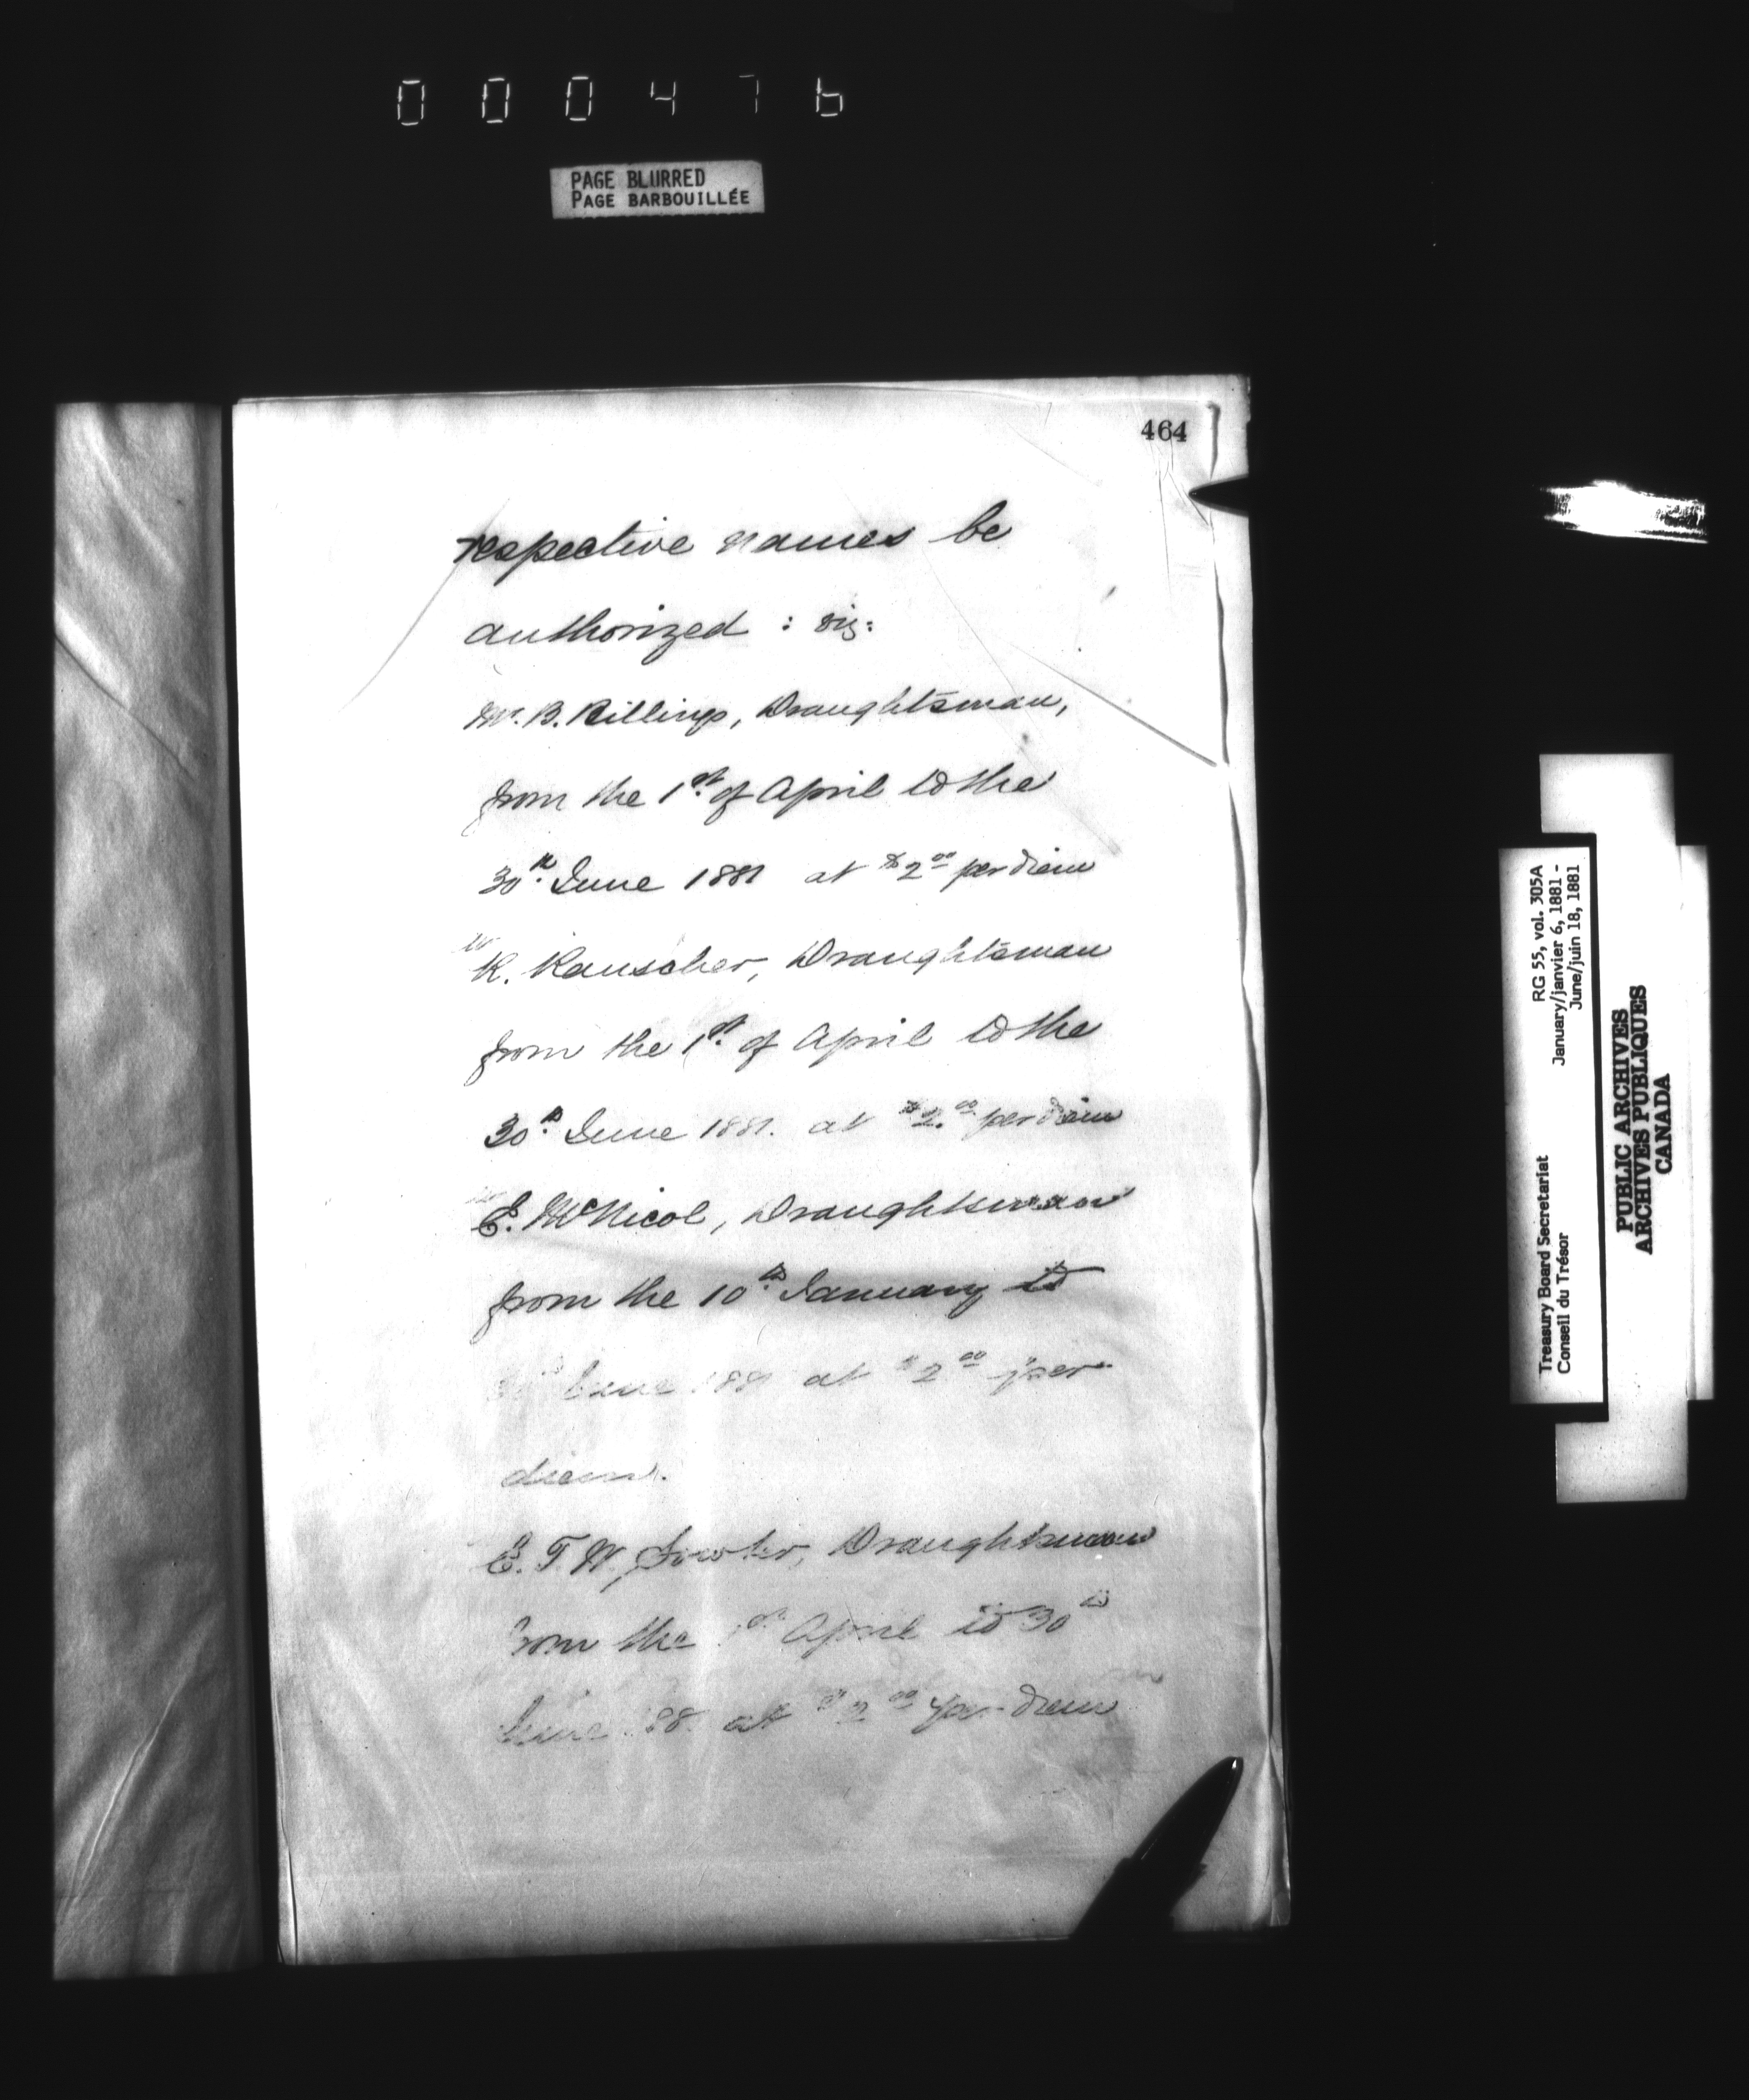 000476
PAGE BLURRED
PAGE BARBOUILLÉE
464
respective names be
authorized : viz:
Mr. B. Billings, Draughtsman,
from the 1st of April to the
30th June 1881 at $2.00 per diem
Mr K. Rauscher, Draughtsman
from the 1st of April to the
30th June 1881. at $2.00 per diem
E. McNicol, Draughtsman
from the 10th January to
June 1881 at $2.00 per
diem.
E. T. W. Fowler, Draughtsman
from the 1st April to 30th
June 188 at $2.00 per diem
RG 55, vol. 305A
January/janvier 6, 1881 -
June/juin 18, 1881
Treasury Board Secretariat
Conseil du Trésor
PUBLIC ARCHIVES
ARCHIVES PUBLIQUES
CANADA